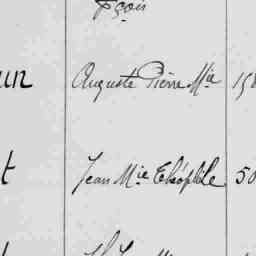 fçois
un Auguste Pierre Mie 158
t Jean Mie Théophile 50